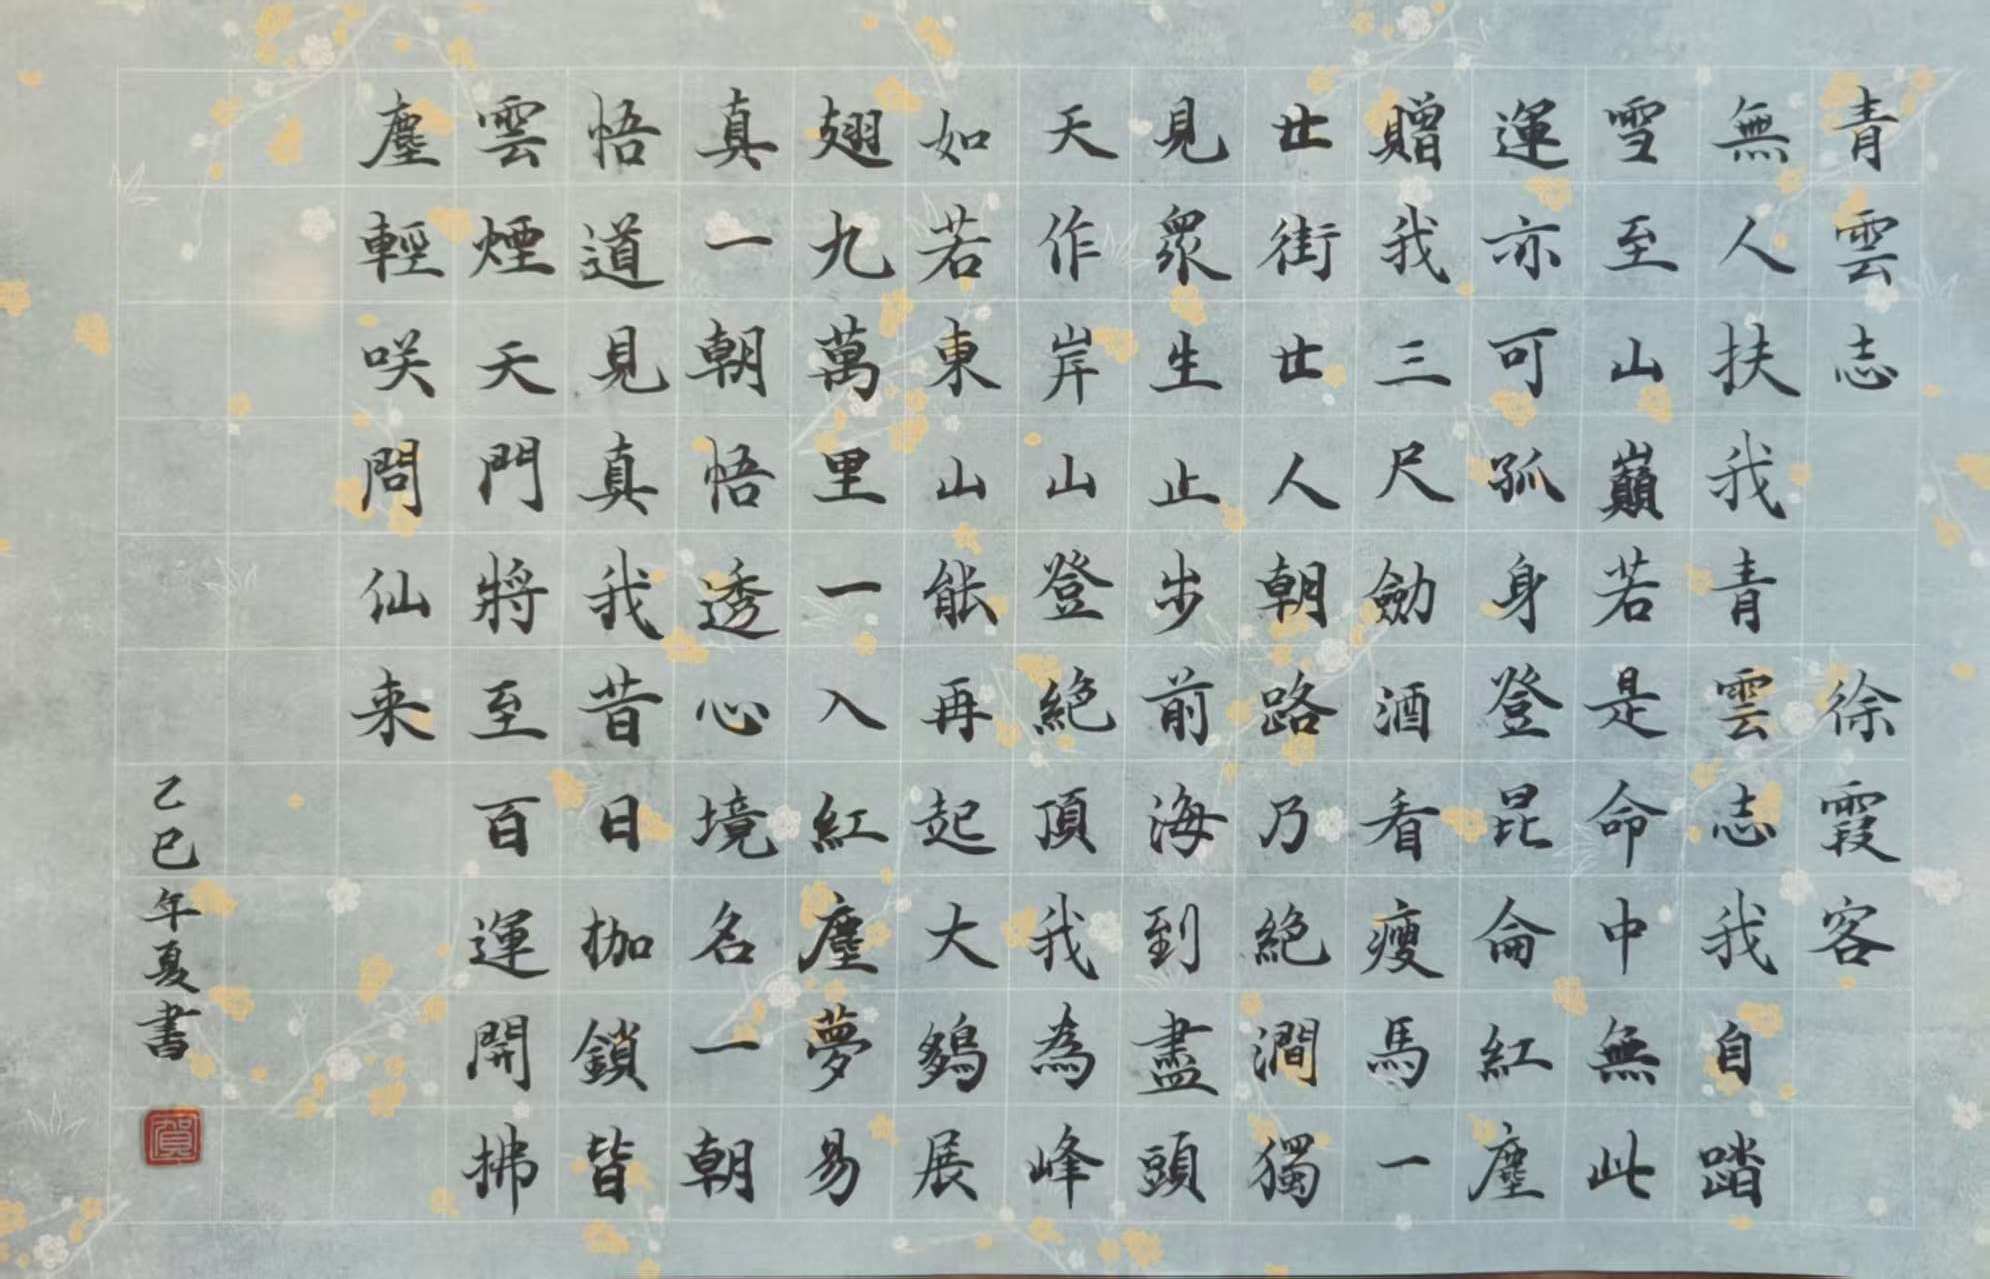 青雲志 徐霞客
無人扶我青雲志我自踏
雪至山巔若是命中無此
運亦可孤身登昆侖紅塵
贈我三尺劍酒看瘦馬一
世街世人朝路乃絕澗獨
見眾生止步前海到盡頭
天作岸山登絕頂我為峰
如若東山能再起大鵬展
翅九萬里一入紅塵夢易
真一朝悟透心境名一朝
悟道見真我昔日枷鎖皆
雲煙天門將至百運開拂
塵輕咲問仙来
乙巳年夏書
賀